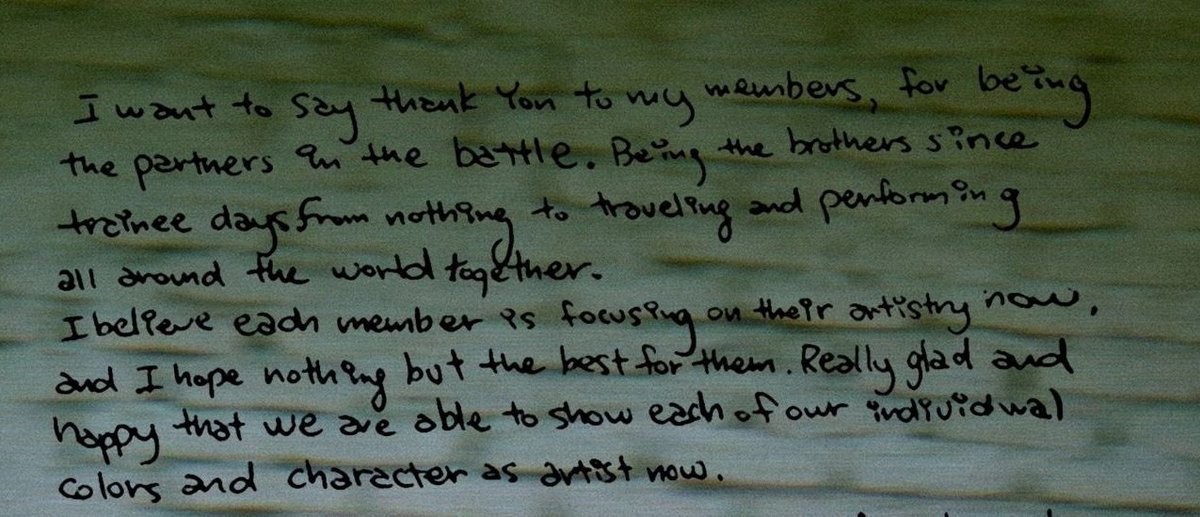 I want to say thank You to my members, for being
the partners in the battle. Being the brothers since
trainee days from nothing to traveling and performing
all around the world together.
I believe each member is focusing on their artistry now,
and I hope nothing but the best for them. Really glad and
happy that we are able to show each of our individual
colors and character as artist now.